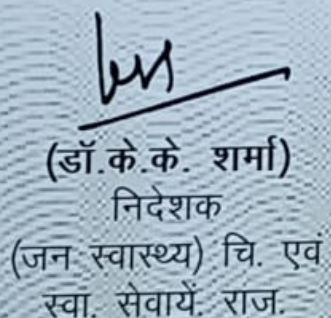 (डॉ.के.के. शर्मा)
निदेशक
(जन स्वास्थ्य) चि. एवं
स्वा. सेवायें. राज.